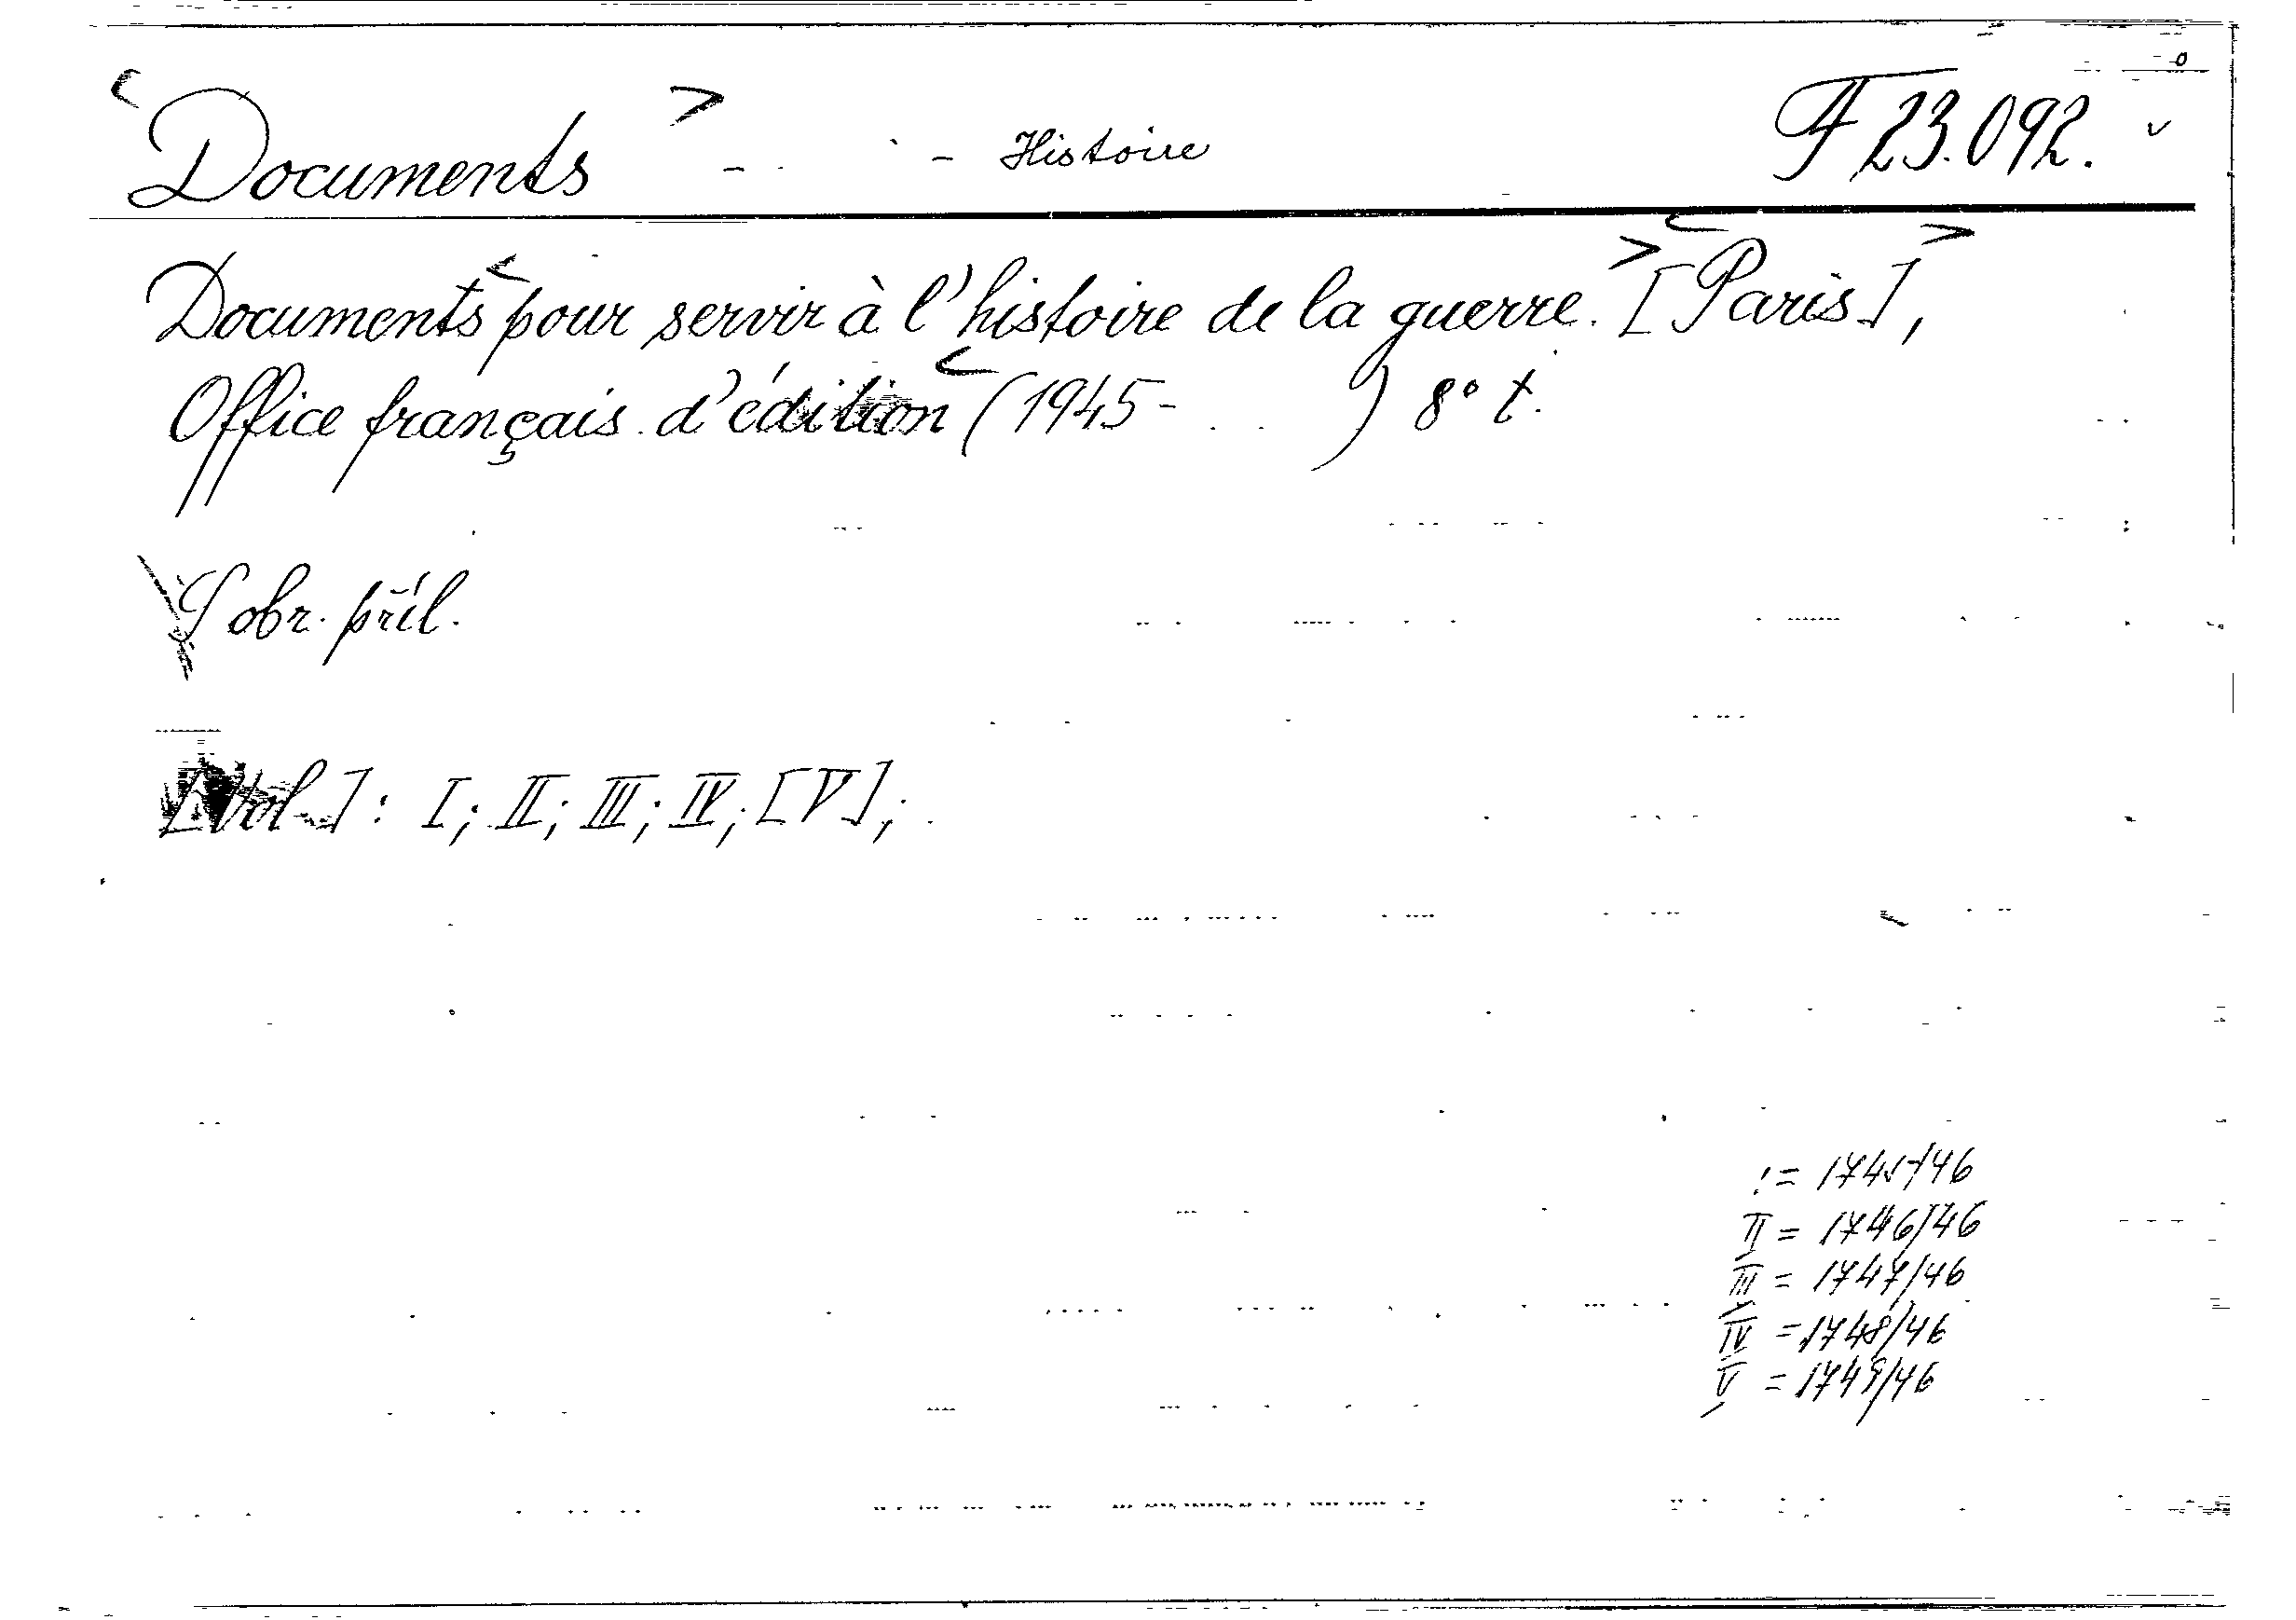 <Documents> - - Histoire F 23.092.
Documents <pour servir à l'histoire de la guerre.> [<Paris],>
Office français d'édition <(1945- ) 8° t.
S obr. příl.
[Vol.]: I; II; III; IV; [V];
I = 1745/46
II = 1746/46
III = 1747/46
IV = 1748/46
V = 1749/46